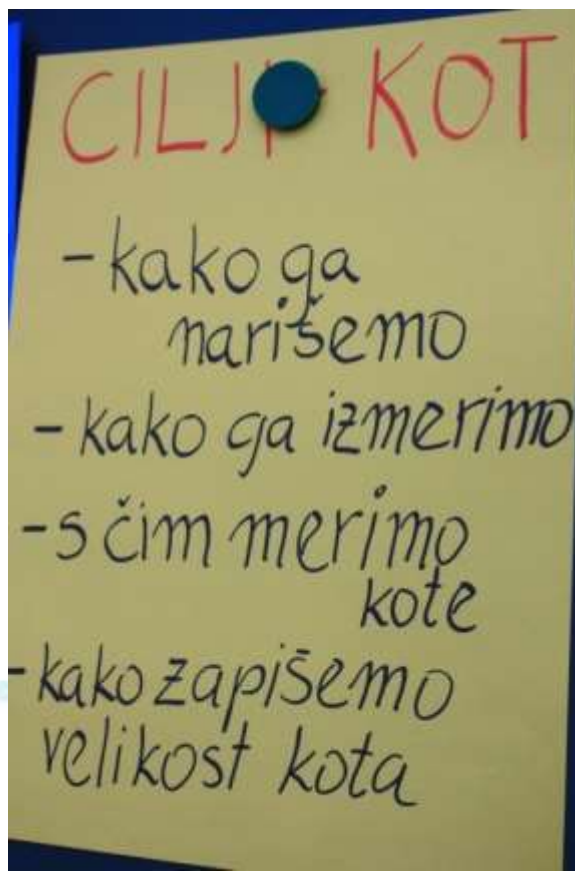 CILJI KOT
- kako ga
narišemo
- kako ga izmerimo
- s čim merimo
kote
- kako zapišemo
velikost kota